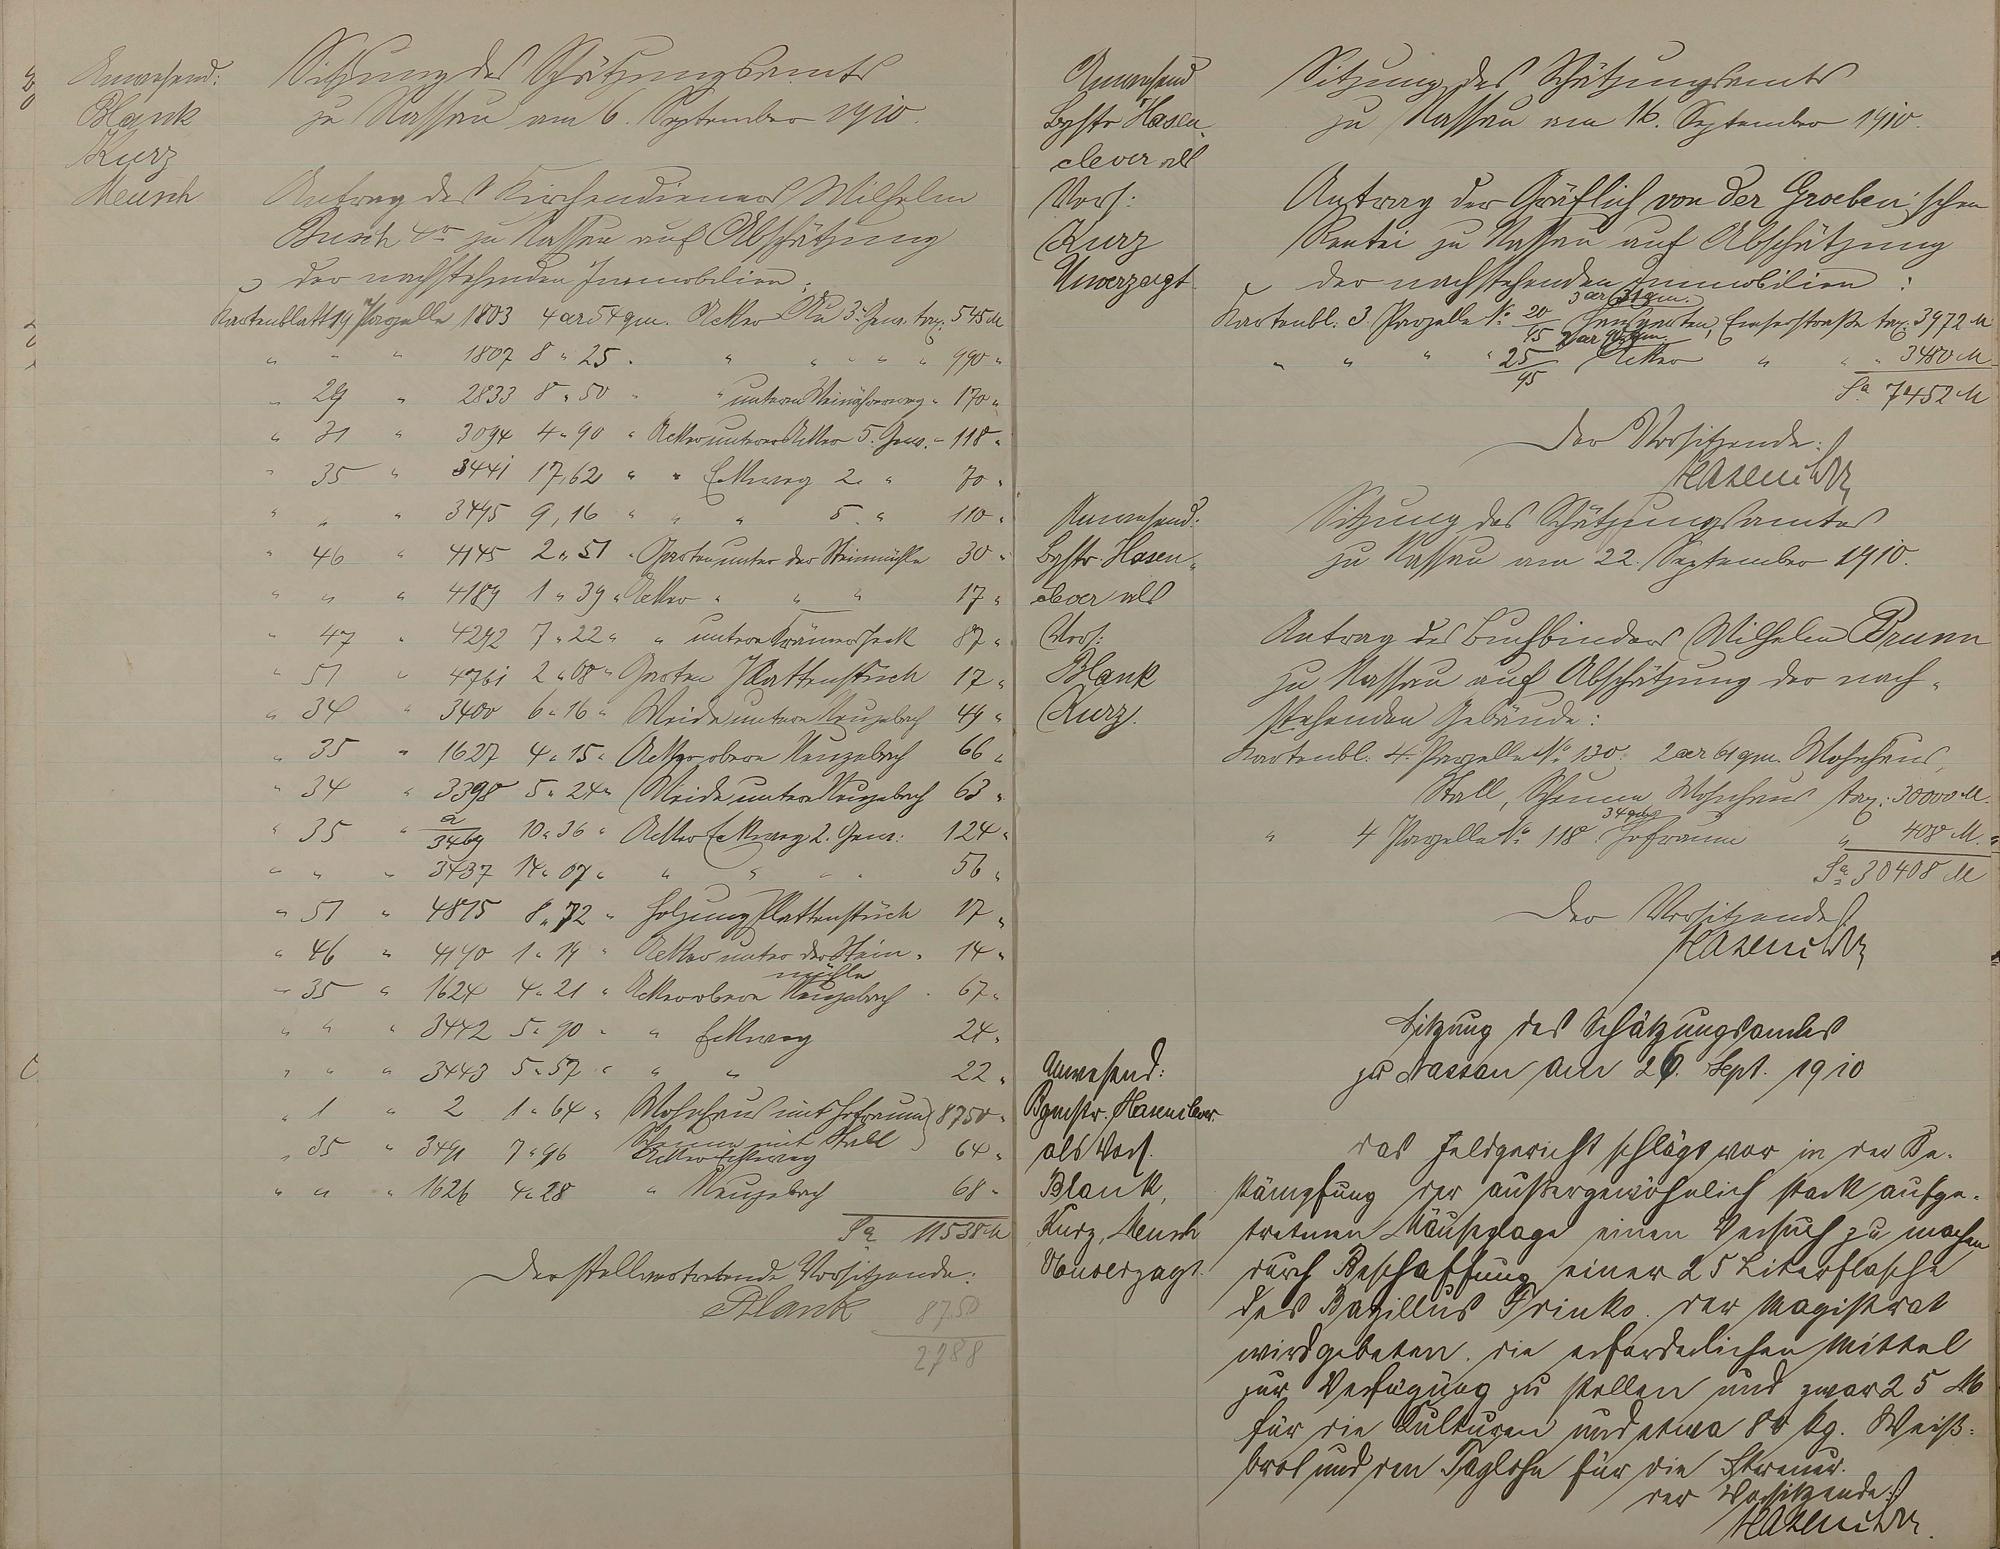 Anwesend:
Blank
Kurz
Meusch
Sitzung des Schätzungsamts
zu Nassau am 6. September 1910.
Antrag des Kirchendieners Wilhelm
Busch zu Nassau auf Abschätzung
der nachstehenden Immobilien.
Kartenblatt 19 Parzelle 1803 4 ar 54 qm. Acker Au 3. Gew. tax. 545 M
" " " 1807 8 " 25 " " " " " " 990 "
" 29 " 2833 8 " 50 " " untern Weinährerweg " 170 "
" 31 " 3094 4 " 90 " Acker unterer Acker 5. Gew. " 118 "
" 35 " 3441 17,62 " " Eckweg 2. " 70 "
" " " 3495 9,16 " " " 5. " 110 "
" 46 " 4145 2 " 51 " Garten unter der Steinmühle 30 "
" " " 4189 1 " 39 " Acker " " " 17 "
" 47 " 4292 7 " 22 " " untere 87 "
" 51 " 4761 2 " 08 " Garten Plattenstück 17 "
" 34 " 3400 6 " 16 " Weide untere Neuzebach 49 "
" 35 " 1627 4 " 15 " Acker obere Neuzebach 66 "
" 34 " 3398 5 " 24 " Weide untere Neuzebach 63 "
" 35 " a/3469 10 " 36 " Acker Eckweg 2. Gew: 124 "
" " " 3437 14 " 07 " " " " " 56 "
" 51 " 4875 8 " 72 " Holzung Plattenstück 17 "
" 46 " 4190 1 " 14 " Acker unter der Stein- 14 "
mühle
" 35 " 1624 4 " 21 " Acker obere Neuzebach " 67 "
" " " 3442 5 " 90 " " Eckweg 24 "
" " " 3443 5 " 57 " " " 22 "
" 1 " 2 1 " 64 " Wohnhaus mit Hofraum 8750 "
Scheune mit Stall
" 35 " 3491 7 " 96 Acker Eckweg 64 "
" " " 1626 4 " 28 " Neuzebach 68 "
Sa 11538 M
Der stellvertretende Vorsitzende:
Blank
8750
2788
Anwesend
Bgstr Hasen-
clever als
Vors:
Kurz
Unverzagt
Sitzung des Schätzungsamts
zu Nassau am 16. September 1910.
Antrag der Gräflich von der Groeben'schen
Rentei zu Nassau auf Abschätzung
der nachstehenden Immobilien:
3 ar 31 qm.
Kartenbl. 3. Parzelle No 20/45 Hausgarten, Emserstraße tax. 3972 M
2 ar 90 qm.
" " " " 25/45 Acker " " " 3480 M
Sa 7452 M
Der Vorsitzende:
Hasenclever
Anwesend:
Bgstr Hasen-
clever als
Vors:
Blank
Kurz.
Sitzung des Schätzungsamtes
zu Nassau am 22. September 1910.
Antrag des Buchbinders Wilhelm Brunn
zu Nassau auf Abschätzung der nach-
stehenden Gebäude:
Kartenbl. 4. Parzelle No 130: 2 ar 61 qm. Wohnhaus,
Stall, Scheune Wohnhaus tax: 30000 M.
34 qm
" 4 Parzelle No 118 Hofraum " 408 M.
Sa 30408 M
Der Vorsitzende
Hasenclever
Anwesend:
Bgmstr. Hasenclever
als Vors.
Blank,
Kurz, Meusch
Unverzagt.
Sitzung des Schätzungsamtes
zu Nassau am 26. Sept. 1910
Das Feldgericht schlägt vor in der Be-
kämpfung der außergewöhnlich stark aufge-
tretenen Mäuseplage einen Versuch zu machen
durch Beschaffung einer 25 Literflasche
des Bazillus Trinko. Der Magistrat
wird gebeten die erforderlichen Mittel
zur Verfügung zu stellen und zwar 25 M
für die Kulturen und etwa 80 kg. Weiß-
brot und den Taglohn für die Streuer.
Der Vorsitzende:
Hasenclever.